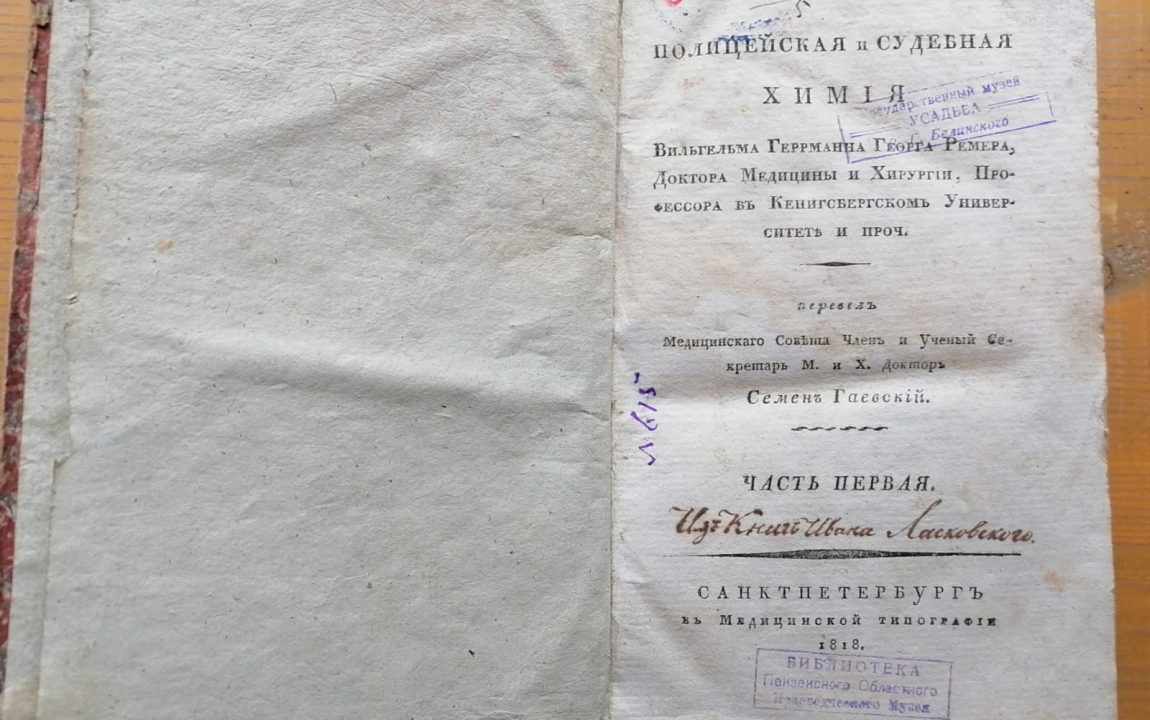 5
ПОЛИЦЕЙСКАЯ и СУДЕБНАЯ
ХИМІЯ
Государственный музей
УСАДЬБА
В. Г. Белинского
Вильгельма Геррманна Георга Ремера,
Доктора Медицины и Хирургіи, Про-
фессора въ Кенигсбергскомъ Универ-
ситетѣ и проч.
перевелъ
Медицинскаго Совѣта Членъ и Ученый Се-
кретарь М. и Х. Докторъ
Семенъ Гаевскій.
№615
ЧАСТЬ ПЕРВАЯ.
Изъ Книгъ Ивана Ласковского.
САНКТПЕТЕРБУРГЪ
въ Медицинской типографіи
1818.
БИБЛИОТЕКА
Пензенского Областного
Краеведческого Музея